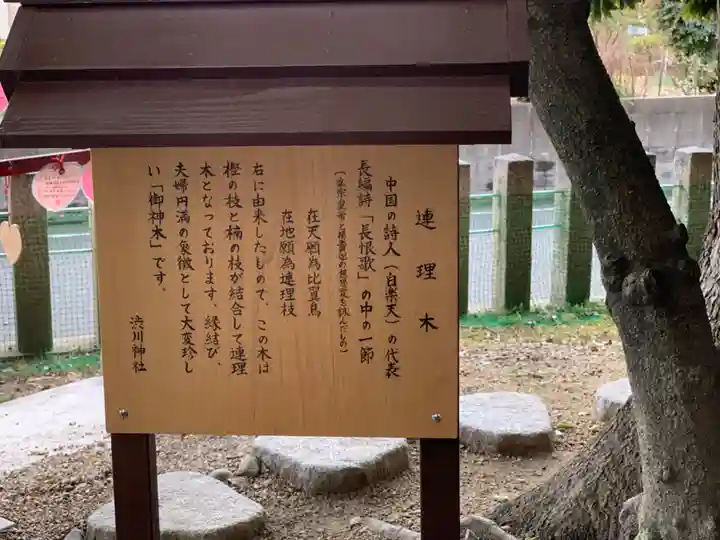 連理木
中国の詩人(白楽天)の代表
長編詩「長恨歌」の中の一節
(玄宗皇帝と楊貴妃の熱愛を詠んだもの)
在天願為比翼鳥
在地願為連理枝
右に由来したもので、この木は
樫の枝と楠の枝が結合して連理
木となっております。縁結び、
夫婦円満の象徴として大変珍し
い「御神木」です。
渋川神社